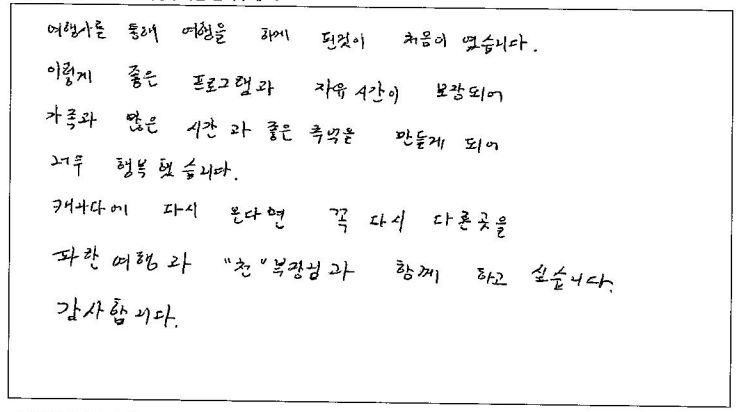 여행사를 통해 여행을 하게 된것이 처음이 였습니다.
이렇게 좋은 프로그램과 자유시간이 보장되어
가족과 많은 시간과 좋은 추억을 만들게 되어
너무 행복했습니다.
캐나다에 다시 온다면 꼭 다시 다른곳을
파란여행과 "천"부장님과 함께 하고 싶습니다.
감사합니다.